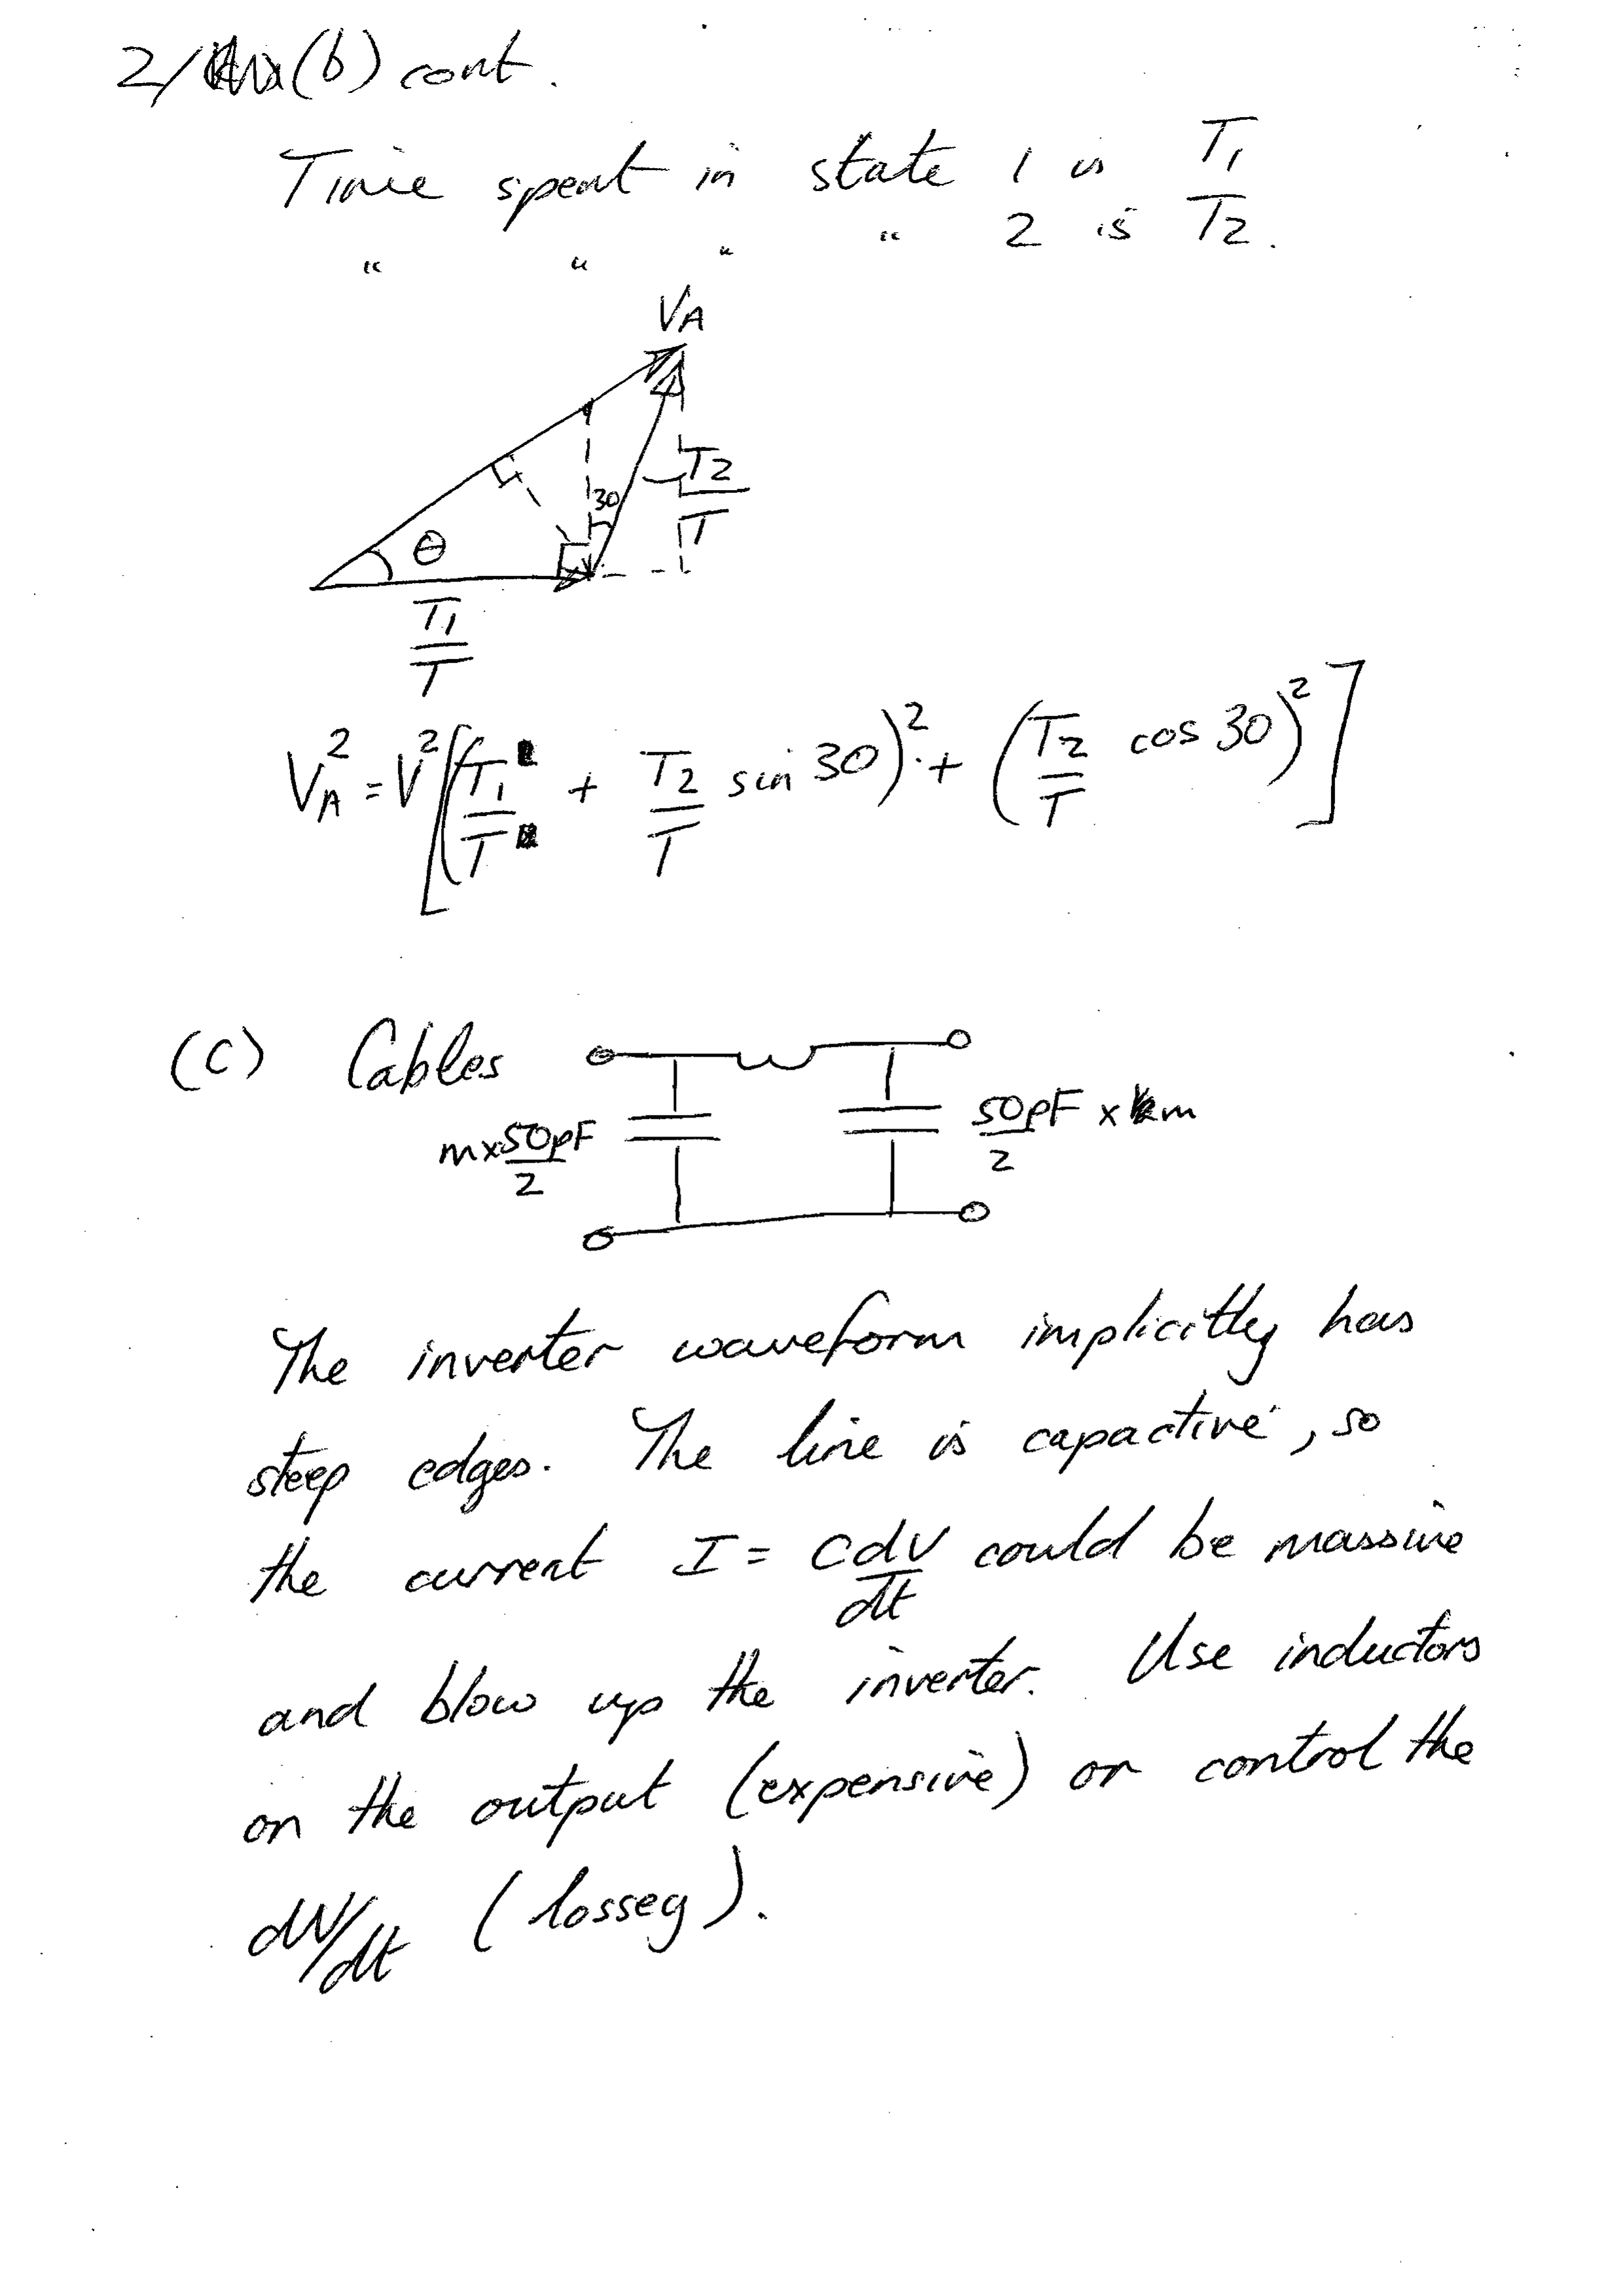 2/(b) cont.
Time spent in state 1 is T1
" " " " 2 is T2.
VA
30
T2/T
θ
T1/T
VA² = V²[(T1/T + T2/T sin 30)² + (T2/T cos 30)²]
(c) Cables
m x 50pF/2
50pF/2 x m
The inverter waveform implicitly has
steep edges. The line is capactive, so
the current I = C dV/dt could be massive
and blow up the inverter. Use inductors
on the output (expensive) or control the
dV/dt (lossey).